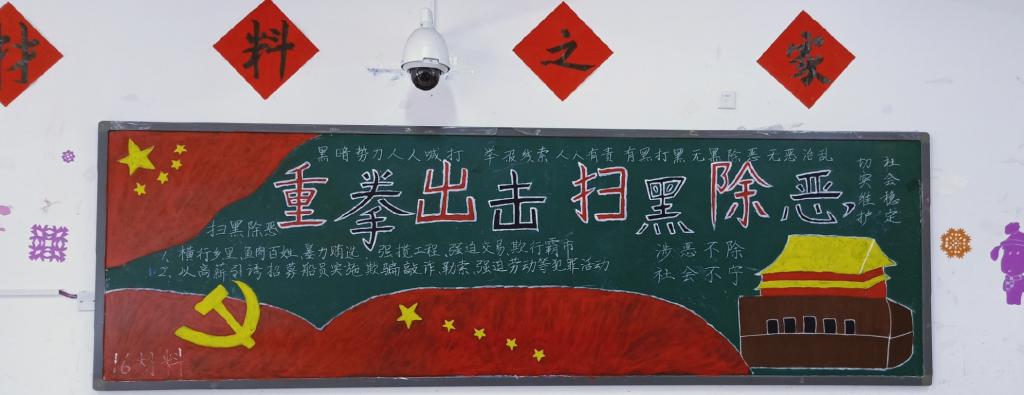 材料之家
黑暗势力人人喊打 举报线索人人有责 有黑打黑无黑除恶无恶治乱
重拳出击扫黑除恶,
社会稳定
切实维护
扫黑除恶
1、横行乡里、鱼肉百姓、暴力贿选、强揽工程、强迫交易、欺行霸市
2、以高薪引诱招募船员实施欺骗敲诈、勒索、强迫劳动等犯罪活动
涉恶不除
社会不宁
16材料